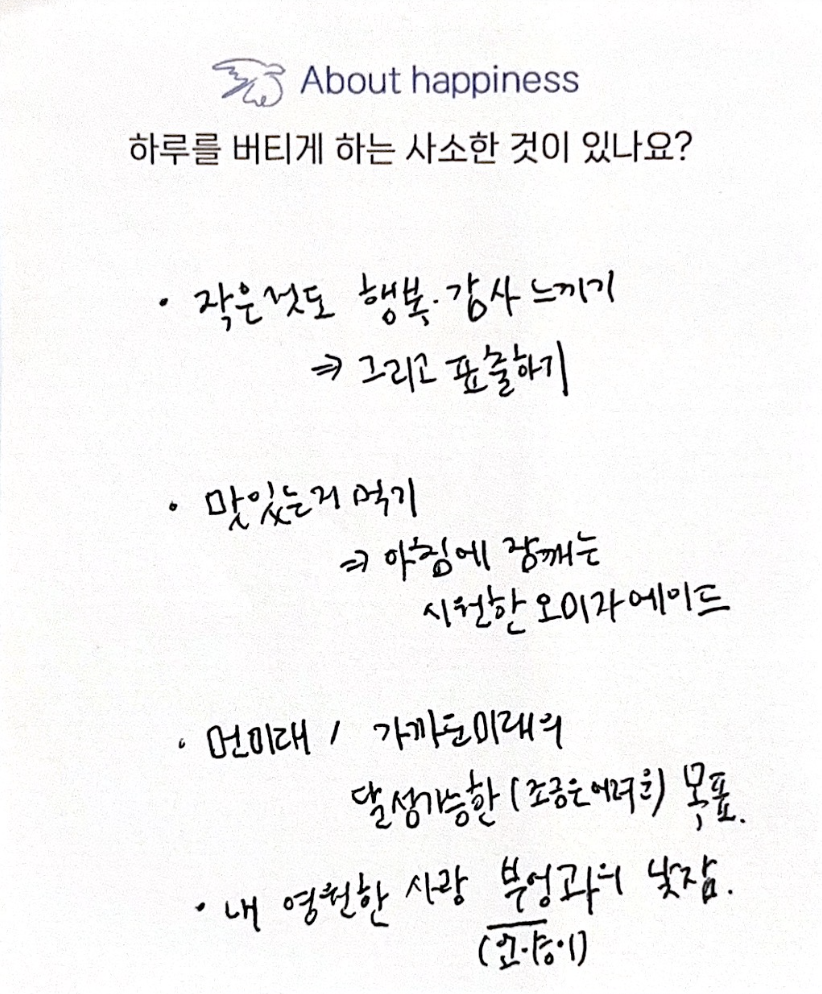 About happiness
하루를 버티게 하는 사소한 것이 있나요?
· 작은것도 행복·감사 느끼기
⇒ 그리고 표출하기
· 맛있는거 먹기
⇒ 아침에 잠깨는
시원한 오미자에이드
· 먼미래 / 가까운미래의
달성가능한 (조금은 어려운) 목표.
· 내 영원한 사랑 부엉과의 낮잠.
(고양이)